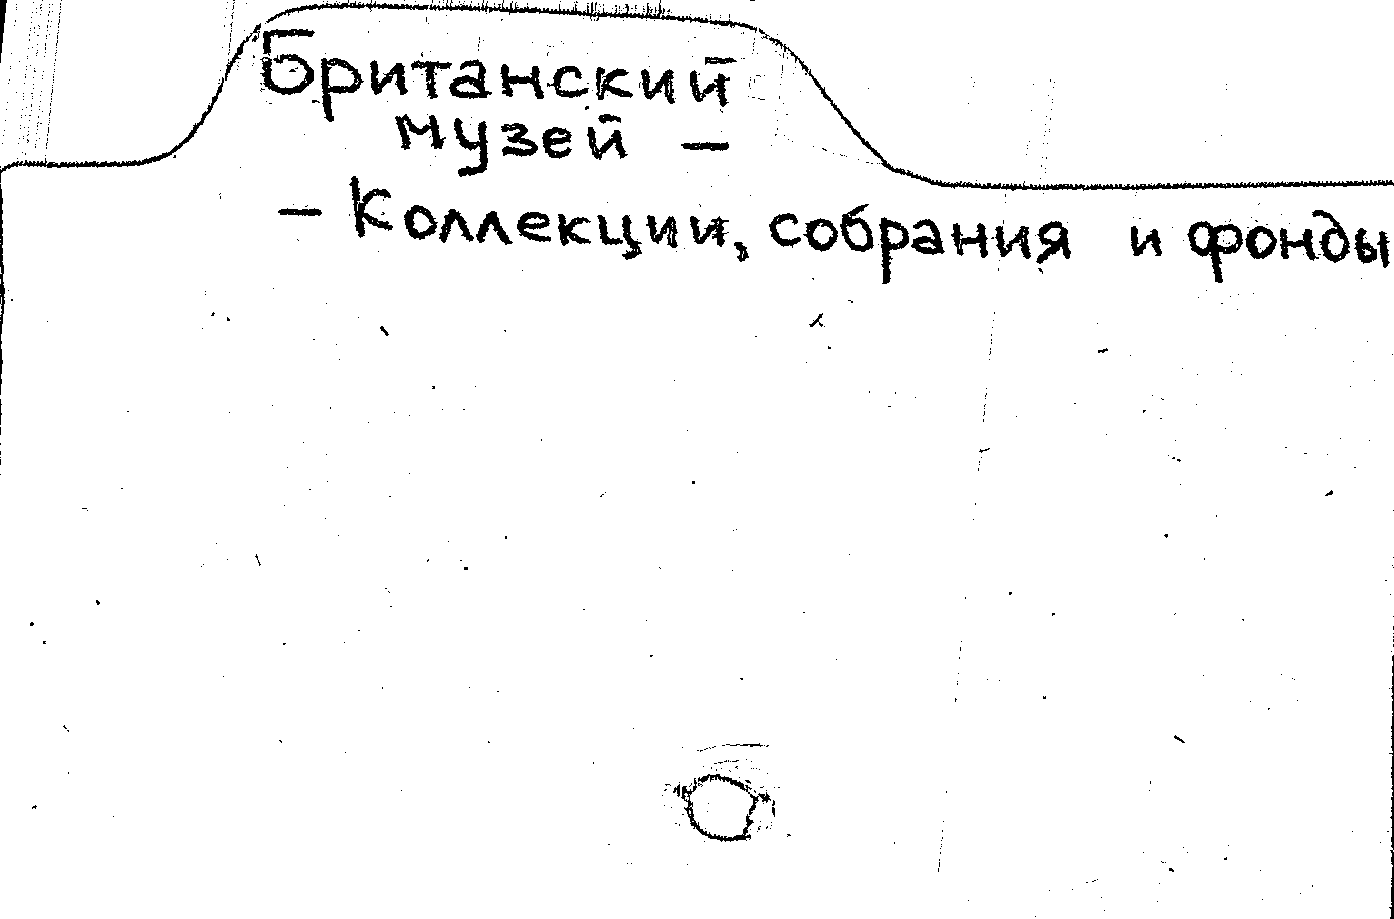 Британский
музей —
— Коллекции, собрания и фонды